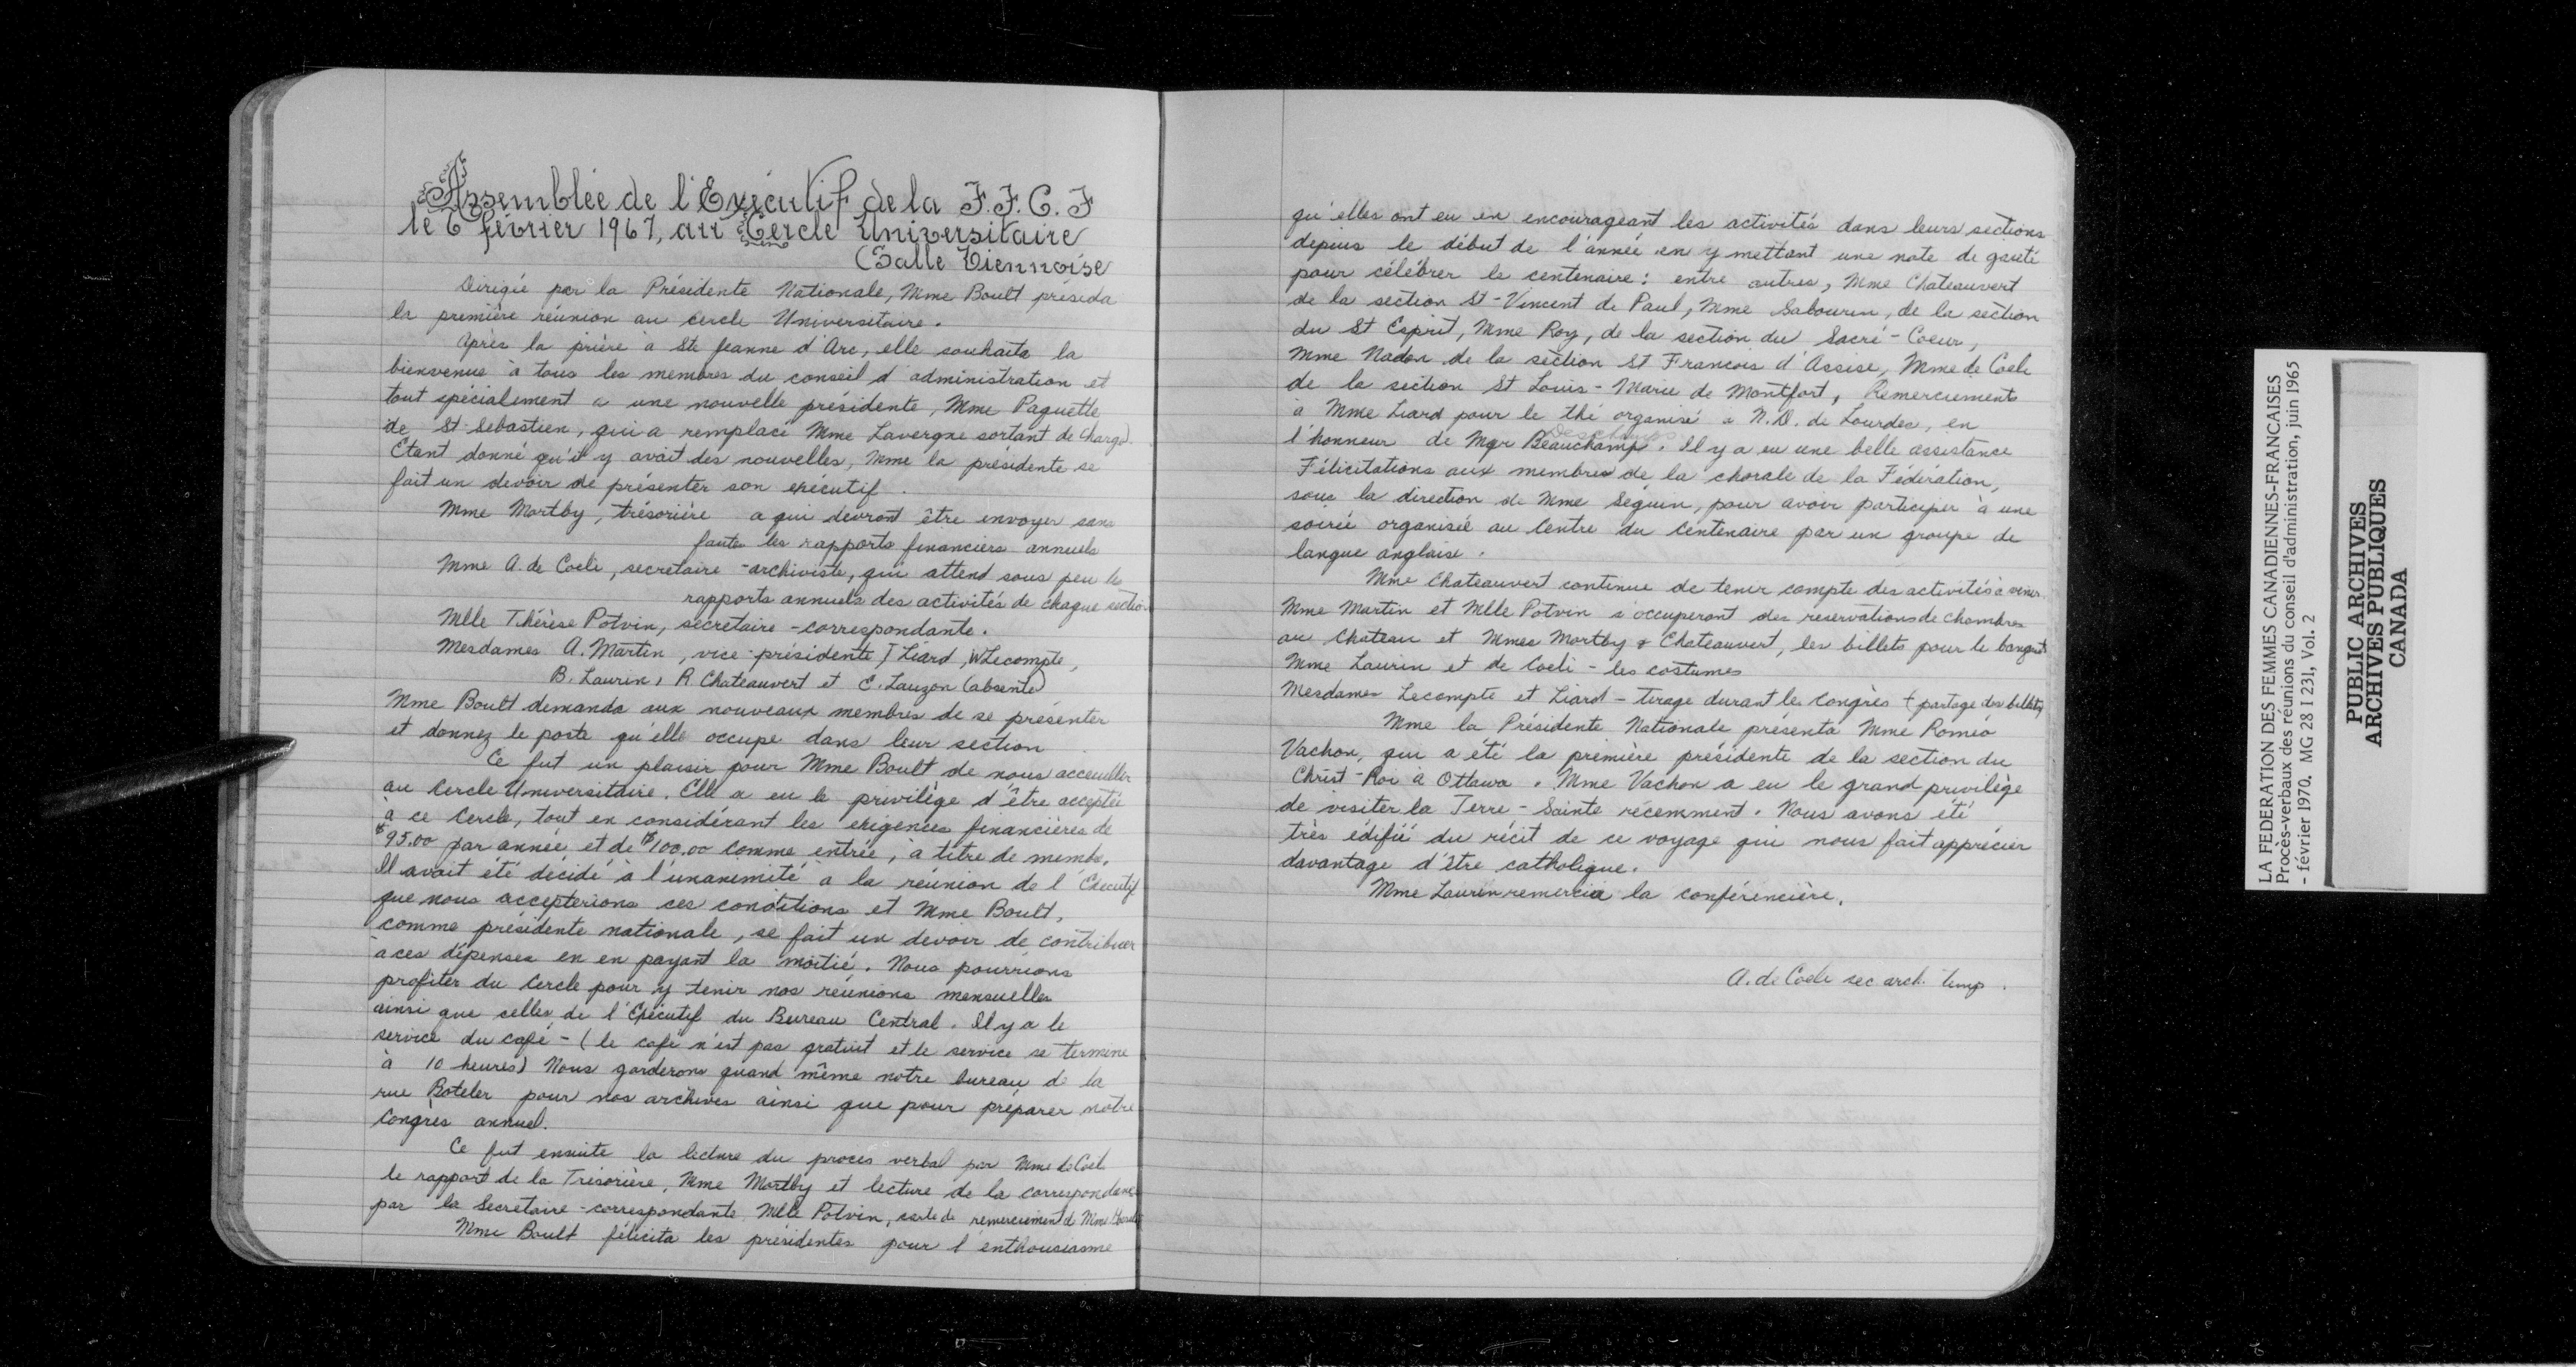 Assemblée de l'Exécutif de la F.F.C.F
le 6 février 1967, au Cercle Universitaire
(Salle Viennoise
Dirigée par la Présidente Nationale, Mme Boult présida
la première réunion au cercle Universitaire.
Après la prière à Ste Jeanne d'Arc, elle souhaita la
bienvenue à tous les membres du conseil d'administration et
tout spécialement a une nouvelle présidente, Mme Paquette
de St-Sebastien, qui a remplacé Mme Lavergne sortant de charge.
Etant donné qu'il y avait des nouvelles, Mme la présidente se
fait un devoir de présenter son exécutif.
Mme Mortby, trésorière a qui devront être envoyer sans
faute les rapports financiers annuels
Mme A. de Coeli, secretaire-archiviste, qui attend sous peu les
rapports annuels des activités de chaque section
Mlle Thérèse Potvin, sécretaire-correspondante.
Mesdames A. Martin, vice-présidente, J Liard, W Lecompte,
B. Laurin, R. Chateauvert et E. Lauzon (absente)
Mme Boult demanda aux nouveaux membres de se présenter
et donnez le poste qu'elle occupe dans leur section
Ce fut un plaisir pour Mme Boult de nous acceuiller
au Cercle Universitaire. Elle a eu le privilège d'être acceptée
à ce Cercle, tout en considérant les exigences financières de
$95.00 par année et de $100.00 comme entrée, à titre de membre.
Il avait été décidé à l'unanimité a la réunion de l'Exécutif
que nous accepterions ces conditions et Mme Boult,
comme présidente nationale, se fait un devoir de contribuer
à ces dépenses en en payant la moitié. Nous pourrions
profiter du Cercle pour y tenir nos réunions mensuelles
ainsi que celles de l'Exécutif du Bureau Central. Il y a le
service du café - (le café n'est pas gratuit et le service se termine
à 10 heures) Nous garderons quand même notre bureau de la
rue Boteler pour nos archives ainsi que pour préparer notre
Congrès annuel.
Ce fut ensuite la lecture du procès verbal par Mme de Coeli
le rapport de la Trésorière, Mme Mortby et lecture de la correspondance
par la Secretaire-correspondante Mlle Potvin, carte de remerciement de Mme
Mme Boult félicita les présidentes pour l'enthousiasme
qu'elles ont eu en encourageant les activités dans leurs sections
depuis le début de l'année en y mettant une note de gaieté
pour célébrer le centenaire: entre autres, Mme Chateauvert
de la section St-Vincent de Paul, Mme Sabourin, de la section
du St Esprit, Mme Roy, de la section du Sacré-Coeur,
Mme Nadon de la section St Francois d'Assise, Mme de Coeli
de la section St Louis-Marie de Montfort, Remerciement
à Mme Liard pour le thé organisé a N.D. de Lourdes, en
l'honneur de Mgr Beauchamp. Deschamps Il y a eu une belle assistance
Félicitations aux membres de la chorale de la Fédération,
sous la direction de Mme Séguin, pour avoir participer à une
soirée organisée au Centre du Centenaire par un groupe de
langue anglaise.
Mme Chateauvert continue de tenir compte des activités à venir
Mme Martin et Mlle Potvin s'occuperont des reservations de chambres
au Chateau et Mmes Mortby & Chateauvert, les billets pour le banquet
Mme Laurin et de Coeli - les costumes
Mesdames Lecompte et Liard - tirage durant les Congrès & partage des billets
Mme la Présidente Nationale présenta Mme Roméo
Vachon, qui a été la première présidente de la section du
Christ-Roi à Ottawa. Mme Vachon a eu le grand privilège
de visiter la Terre-Sainte récemment. Nous avons été
très édifié du récit de ce voyage qui nous fait apprécier
davantage d'être catholique.
Mme Laurin remercia la conférencière.
A. de Coeli sec arch. temp.
LA FEDERATION DES FEMMES CANADIENNES-FRANCAISES
Procès-verbaux des réunions du conseil d'administration, juin 1965
- février 1970. MG 28 I 231, Vol. 2
PUBLIC ARCHIVES
ARCHIVES PUBLIQUES
CANADA